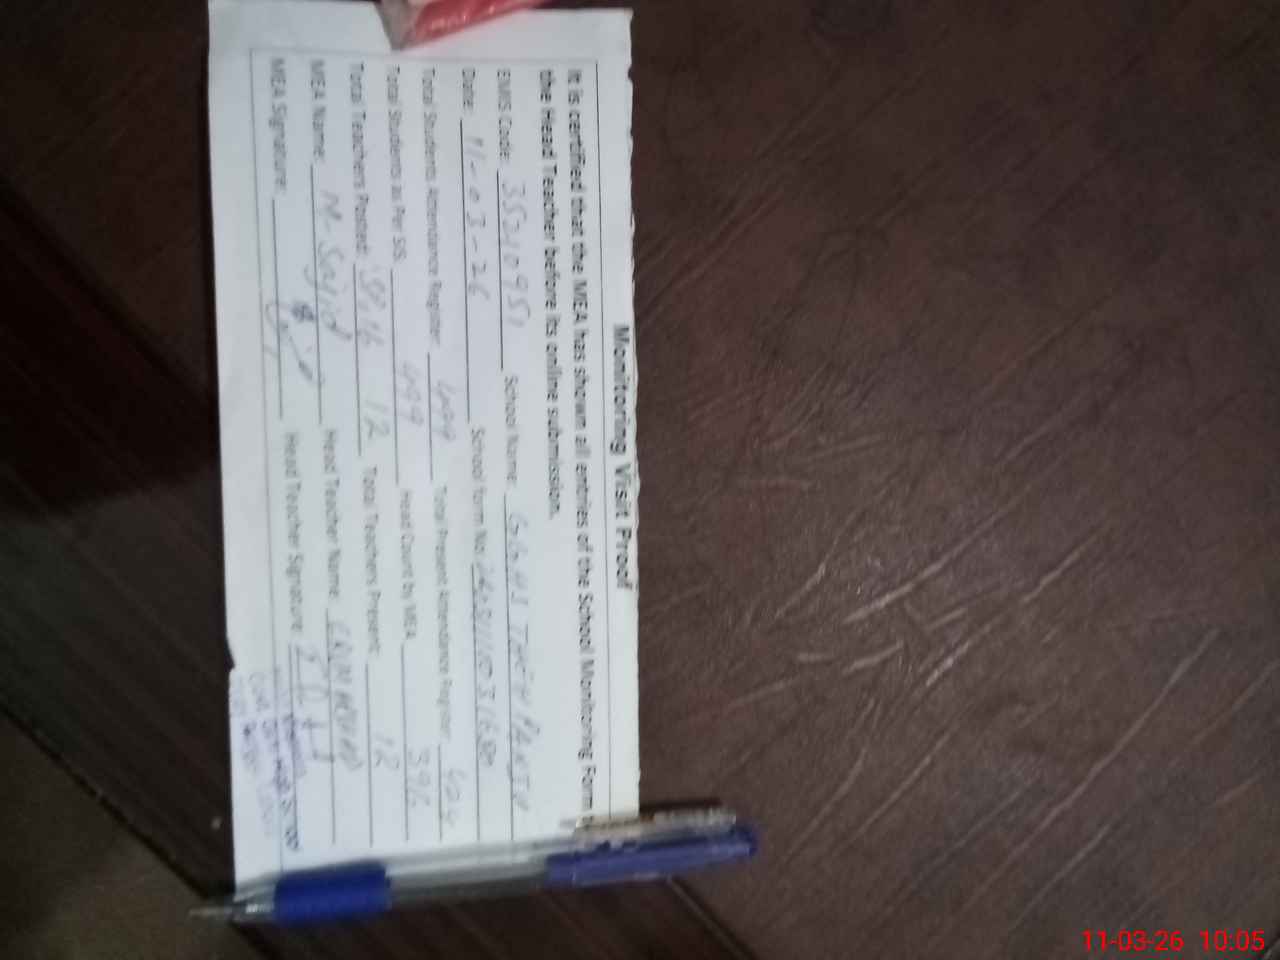 Monitoring Visit Proof
It is certified that the MEA has shown all entries of the School Monitoring Form
the Head Teacher before its online submission.
EMIS Code: 35210951 School Name: GGHS
Date: 11-03-26 School Form No:
Total Students Attendance Register: 499 Total Present Attendance Register:
Total Students as Per SIS: 499 Head Count by MEA 396
Total Teachers Posted: 12 Total Teachers Present: 12
MEA Name: M-Sajid Head Teacher Name:
MEA Signature: Head Teacher Signature:
11-03-26 10:05